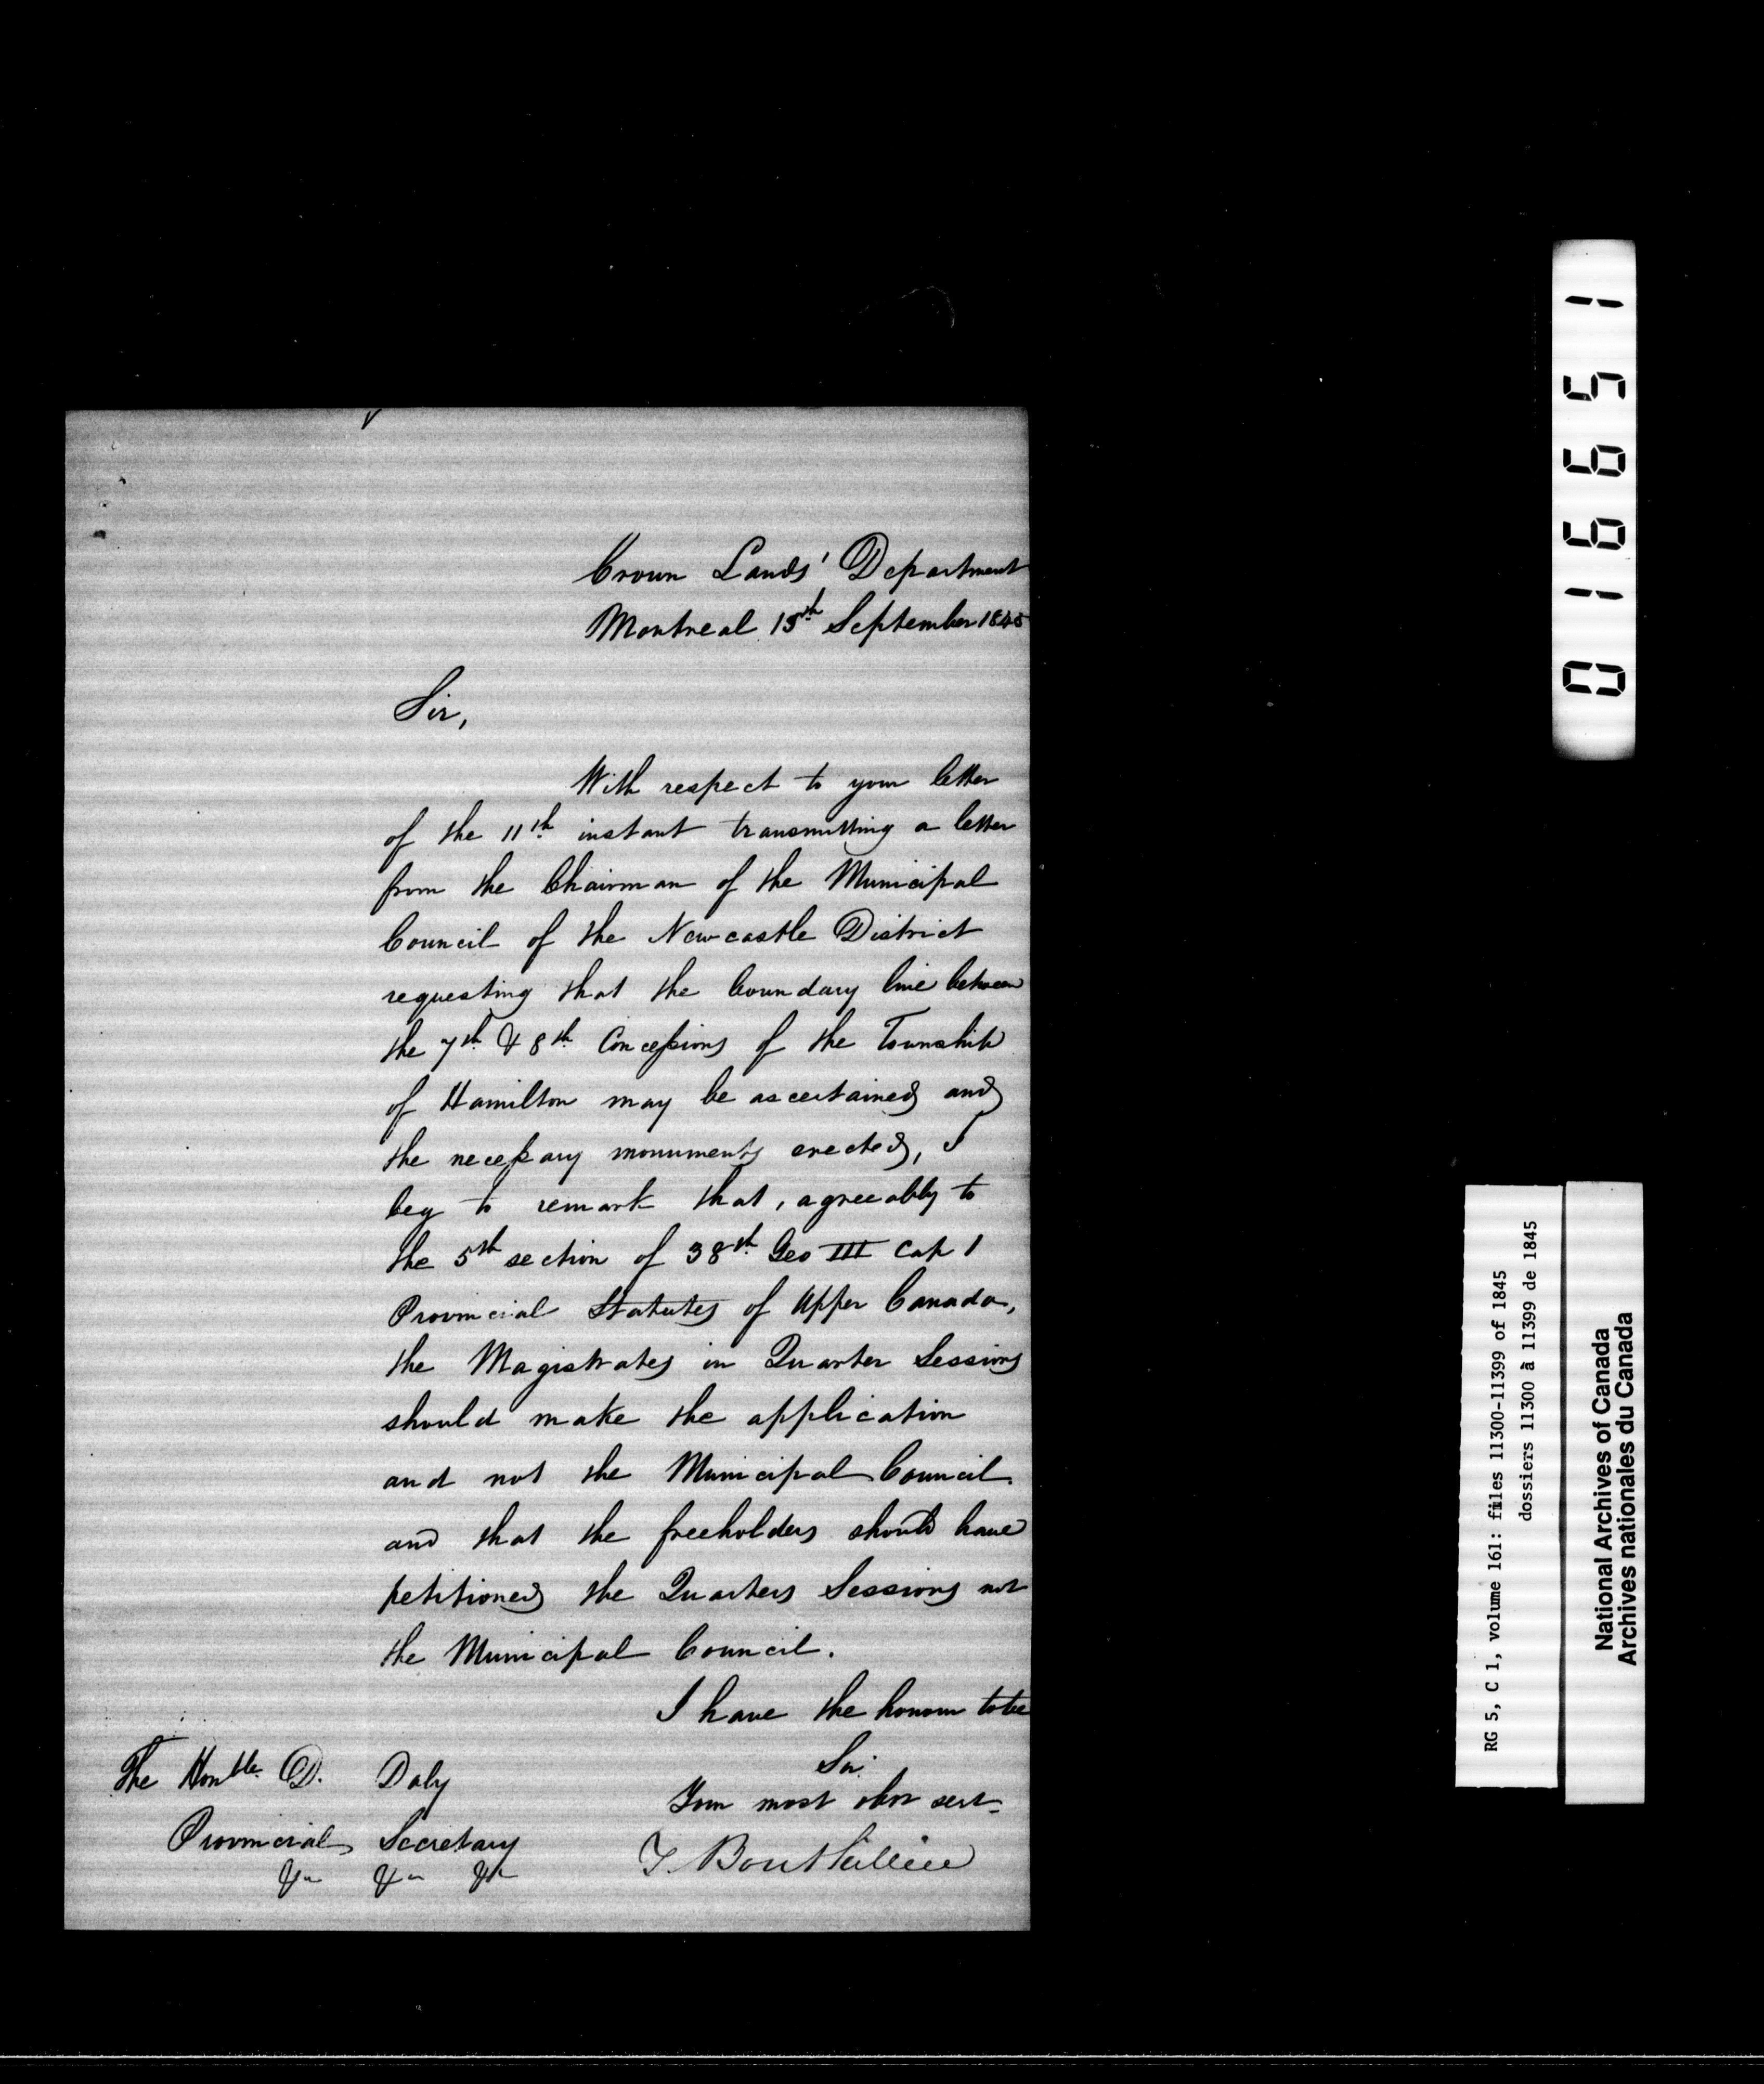 Crown Lands' Department
Montreal 15th September 1845
Sir,
With respect to your letter
of the 11th instant transmitting a letter
from the Chairman of the Municipal
Council of the Newcastle District
requesting that the boundary line between
the 7th & 8th Concessions of the Township
of Hamilton may be ascertained and
the necessary monuments erected, I
beg to remark that, agreeably to
the 5th section of 38th Geo III Cap 1
Provincial Statutes of Upper Canada,
the Magistrates in Quarter Sessions
should make the application
and not the Municipal Council.
and that the freeholders should have
petitioned the Quarters Sessions not
the Municipal Council.
I have the honour to be
Sir
Your most obdt servt
T. Bouthillier
The Honble. D. Daly
Provincial Secretary
&c &c &c
016651
RG 5, C 1, volume 161: files 11300-11399 of 1845
dossiers 11300 à 11399 de 1845
National Archives of Canada
Archives nationales du Canada